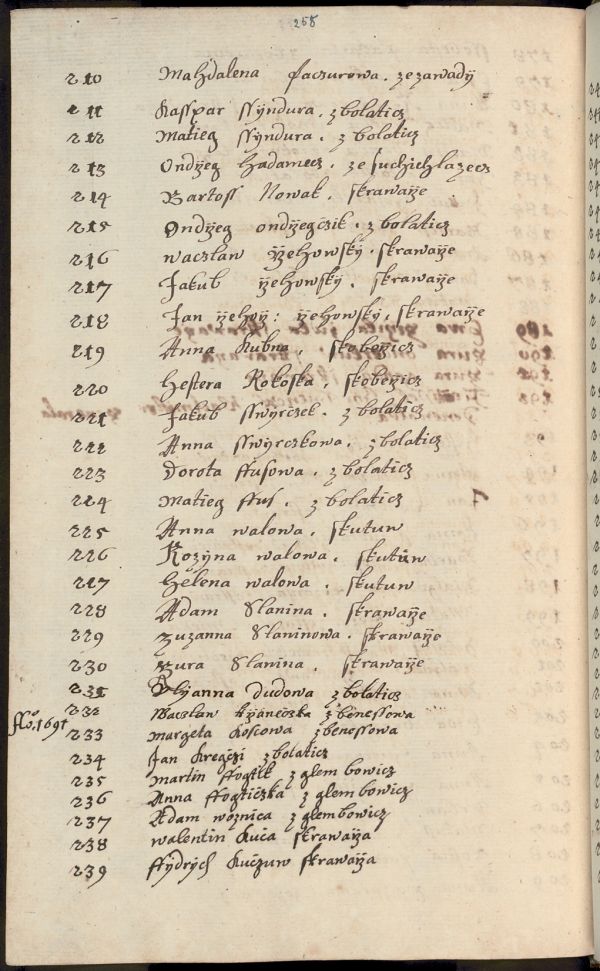 258
210 Mahdalena Paczurowa. ze zawady
211 Kasspar Ssyndura. z bolaticz
212 Matieg Ssyndura. z bolaticz
213 Ondrzeg Hadamecz. ze suchichlazecz
214 Bartoss Nowak. skrawarze
215 Ondrzeg ondrzegczik. z bolaticz
216 waczlaw rzehowsky. skrawarze
217 Jakub rzehowsky. skrawarze
218 Jan rzehorz: rzehowsky. skrawarze
219 Anna Kubna. skoberzicz
220 Hestera Rokoska. skoberzicz
221 Jakub sswyrczek. z bolaticz
222 Anna sswyrczkowa. z bolaticz
223 Dorota ffusowa. z bolaticz
224 Matieg ffus. z bolaticz
225 Anna walowa. skutuw
226 Rozyna walowa. skutuw
227 Helena walowa. skutuw
228 Adam Slanina. skrawarze
229 Zuzanna Slaninowa. skrawarze
230 Zura Slanina. skrawarze
231 dudowa z bolaticz
232 Waczlaw z benessowa
Aō. 1691
233 Margeta Koscowa z benessowa
234 Jan Kregczi z bolaticz
235 Martin ffogtik z glembowicz
236 Anna ffogticzka z glembowicz
237 Adam woznica z glembowicz
238 walentin Kuča skrawarza
239 ffydrych Kučzuw skrawarza